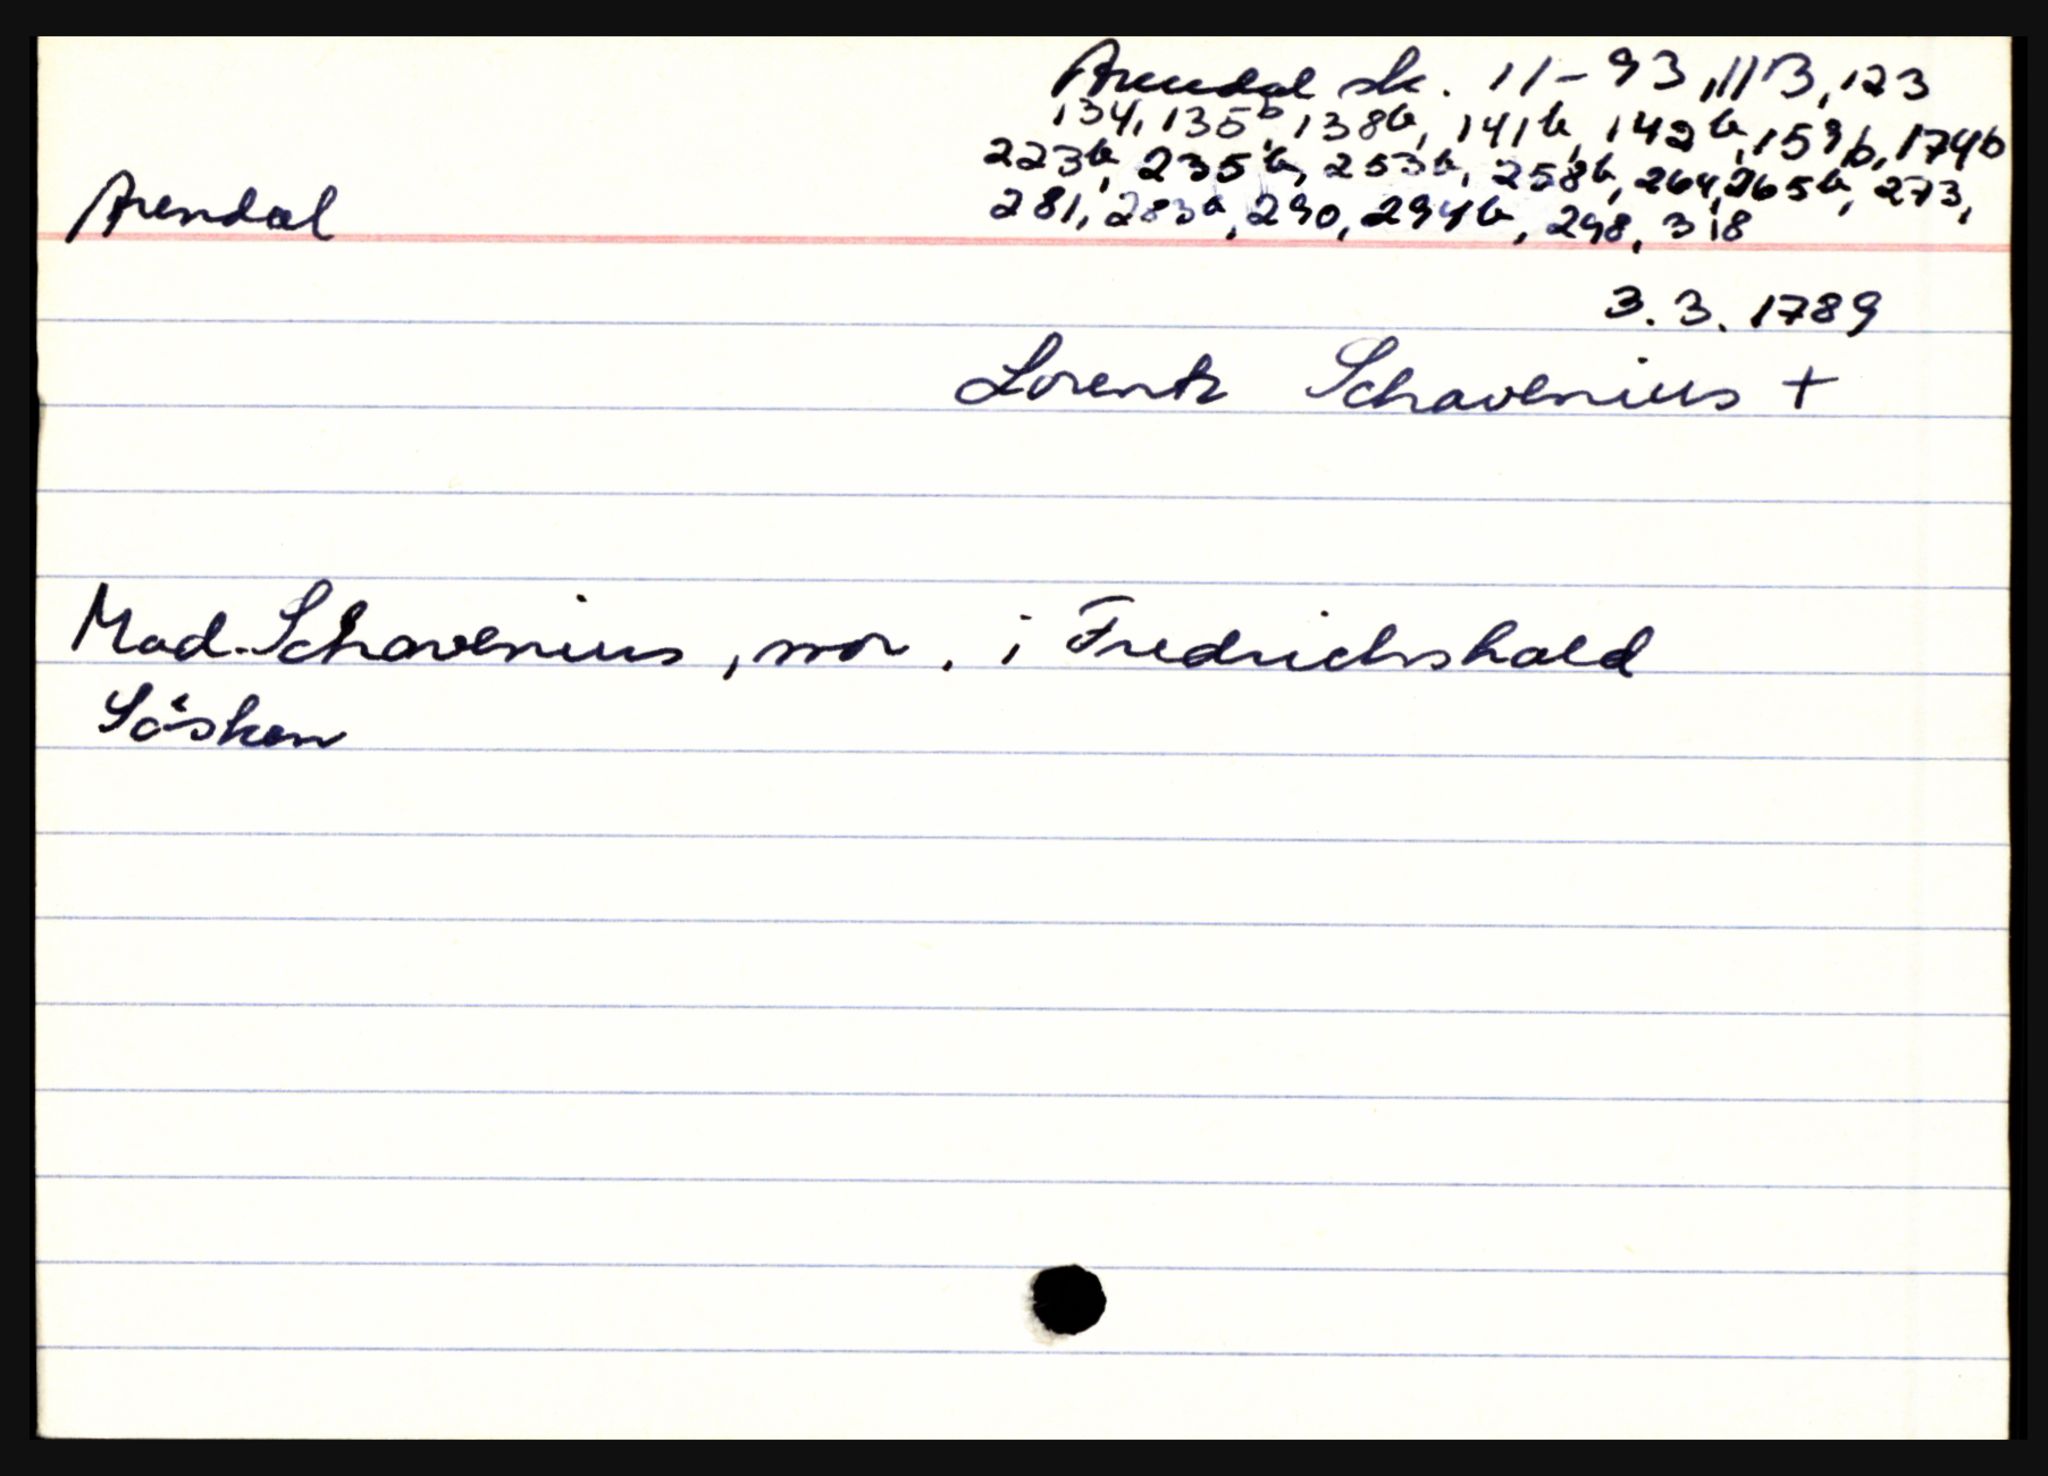 Arendal sk. 11-93, 113, 123
134, 135b, 138b, 141b, 142b, 159b, 174b
223b, 235b, 253b, 258b, 264, 265b, 273,
281, 283a, 290, 294b, 298, 318
Arendal
3.3.1789
Lorentz Schavenius +
Mad. Schavenius, mor, i Fredrichshald
Søsken